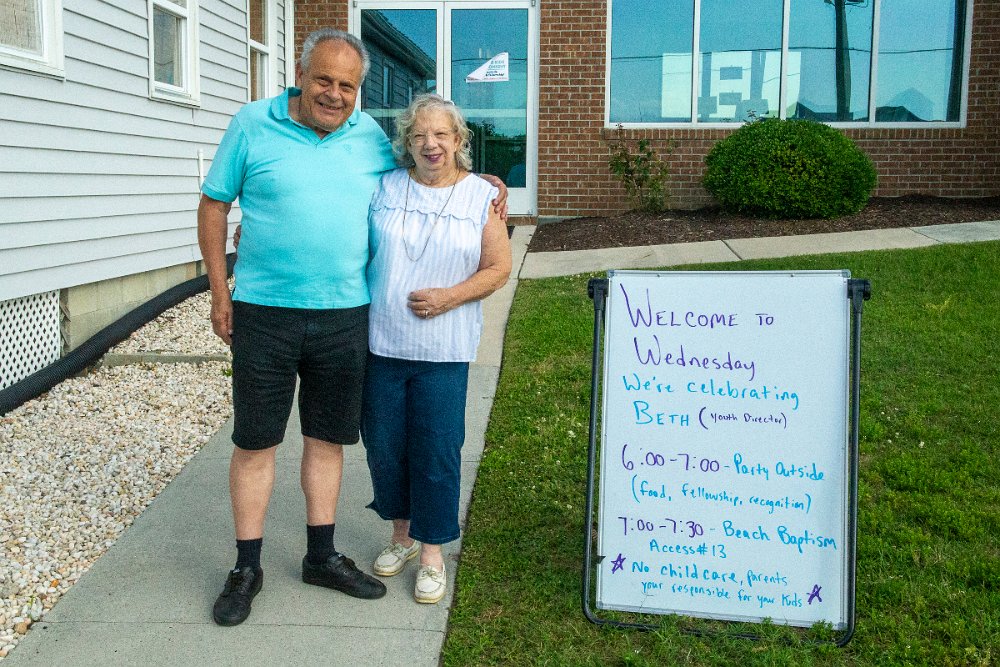 Welcome to
Wednesday
We're celebrating
Beth (Youth Director)
6:00-7:00 - Party Outside
(food, fellowship, recognition)
7:00-7:30 - Beach Baptism
Access #13
☆ No childcare, parents
your responsible for your kids ☆